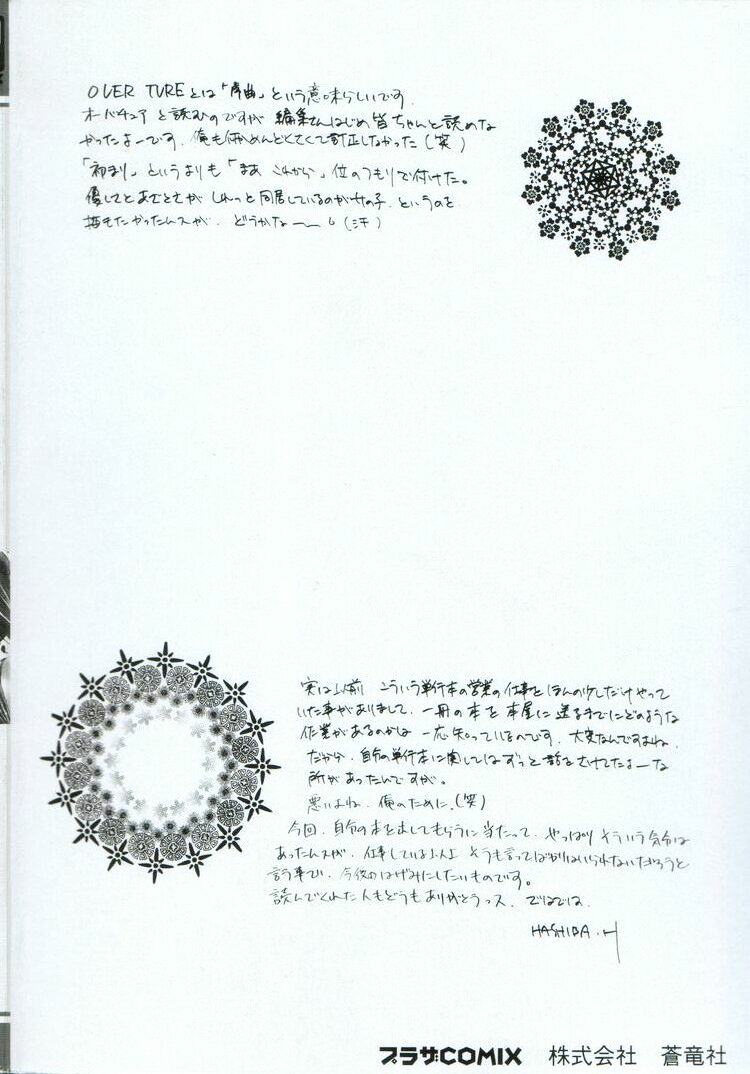 OVER TUREとは「序曲」という意味らしいです。
オーバチュアと読むのですが 編集さんはじめ皆ちゃんと読めな
かったよーです。俺も何かめんどくさくて訂正しなかった(笑)
「初まり」というよりも「まあ これから」位のつもりで付けた。
優しさと がしれっと同居しているのが女の子、というのを
描きたかったんスが、どうかなー (汗)
実は以前 こういう単行本の営業の仕事をほんの少しだけやって
いた事がありまして、一冊の本を本屋に送るまでにどのような
作業があるのかは一応知っているのです。大変なんですよね。
だから、自分の単行本に関してはずっと話をさけてたよーな
所があったんですが。
悪いよね、俺のために。(笑)
今回、自分の本を出してもらうに当たって、やっぱりそういう気分は
あったんスが、仕事している以上そうも言ってばかりはいられないだろうと
言う事で、今後のはげみにしたいものです。
読んでくれた人もどうもありがとうっス。ではでは。
HASHIBA.H
プラザCOMIX 株式会社 蒼竜社